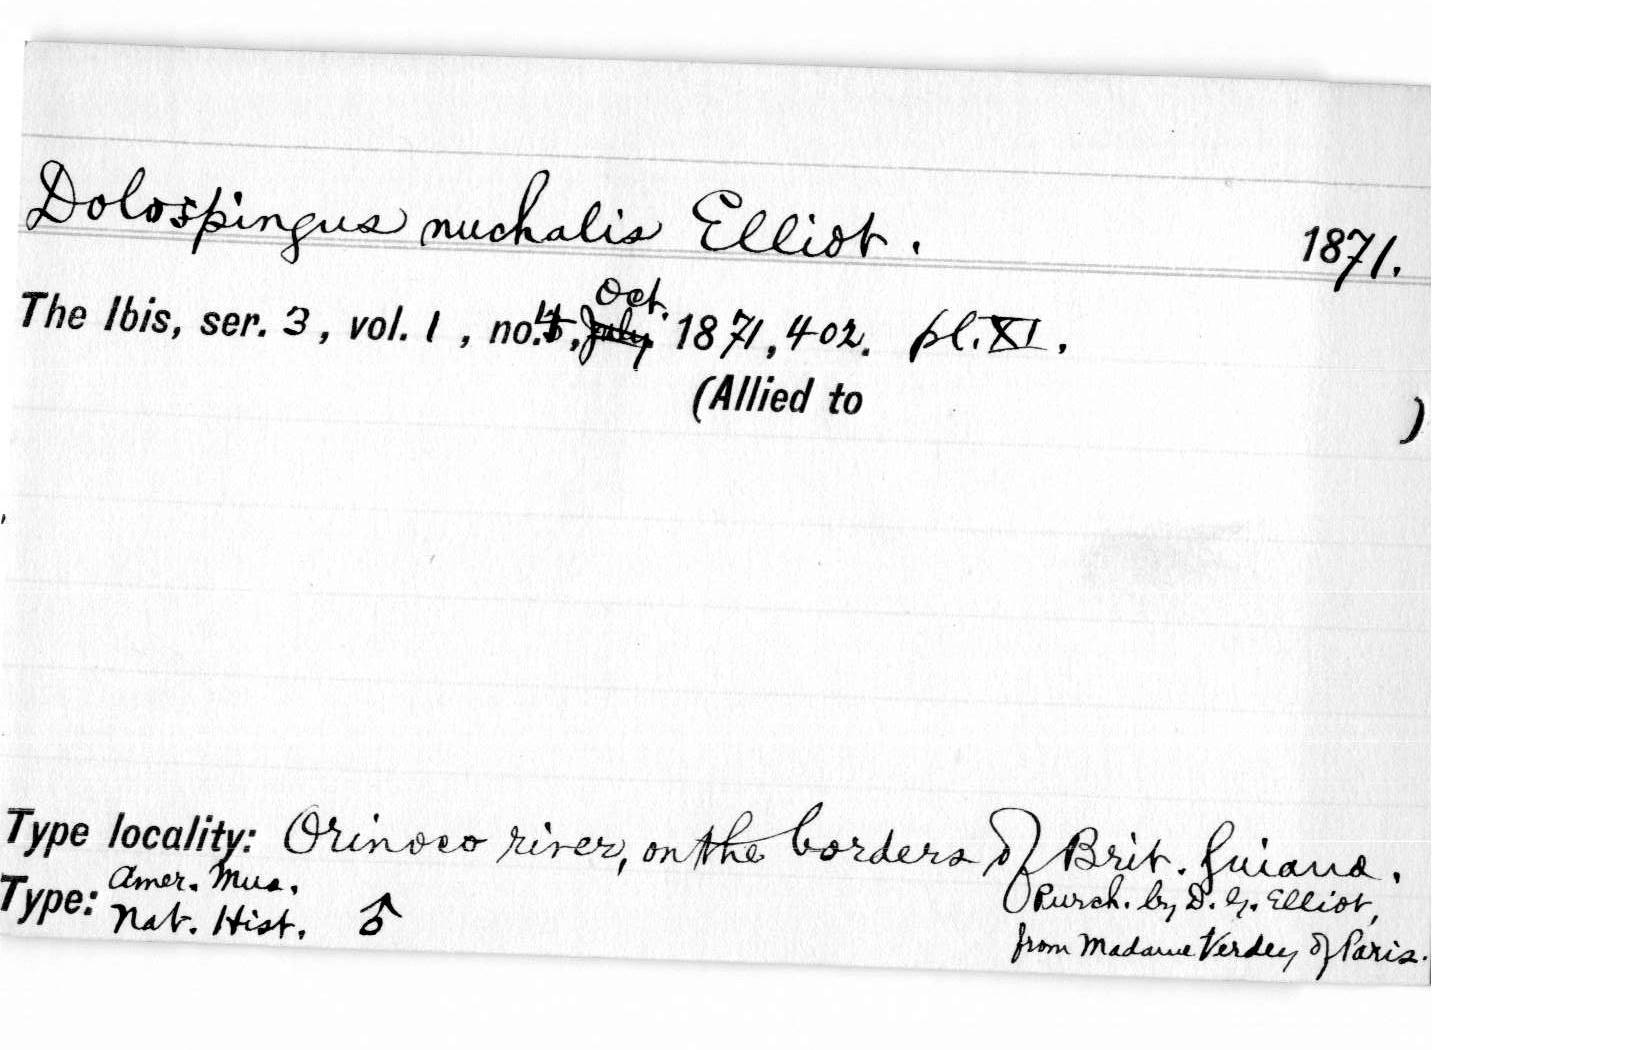 Dolospingus nuchalis Elliot. 1871.
Oct.
The Ibis, ser. 3, vol. 1, no. 4, July 1871, 402. pl. XI.
(Allied to )
Type locality: Orinoco river, on the borders of Brit. Guiana.
Type: Amer. Mus. Nat. Hist. ♂
Purch. by D. G. Elliot,
from Madame Verdey of Paris.